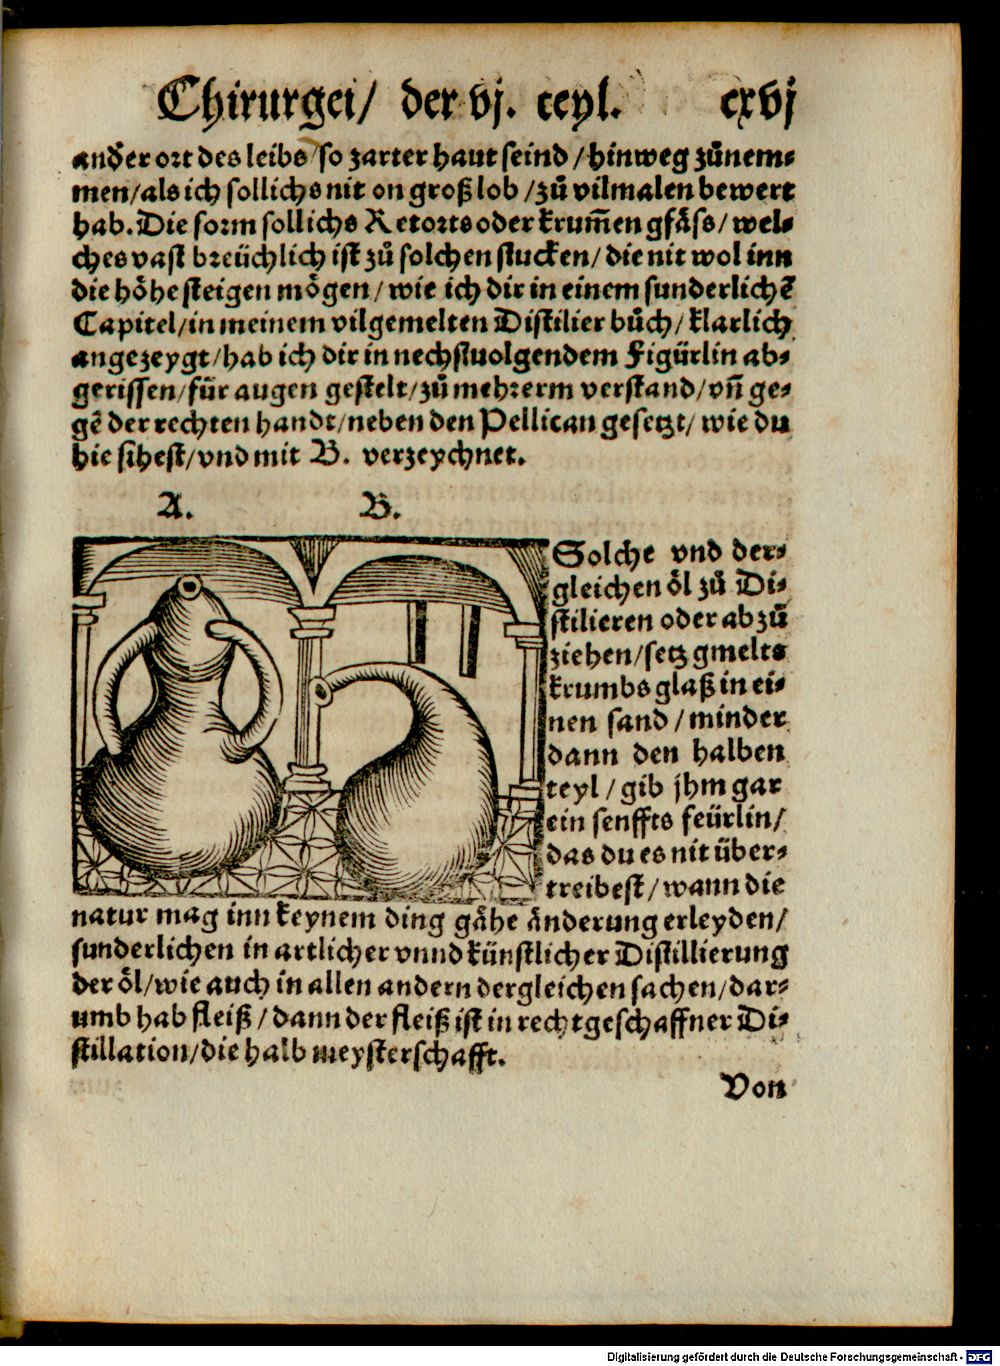 Chirurgei/ der vj. teyl. cxvj
andͤer ort des leibs so zarter haut seind/hinweg zůnem⸗
men/als ich sollichs nit on groß lob/zů vilmalen bewert
hab. Die form sollichs Retorts oder krum̄en gfäſs/wel⸗
ches vast breüchlich ist zů solchen stucken/die nit wol inn
die höhe steigen mögen/wie ich dir in einem sunderlichē
Capitel/in meinem vilgemelten Distilier bůch/klarlich
angezeygt/hab ich dir in nechstuolgendem Figürlin ab⸗
gerissen/für augen gestelt/zů mehrerm verstand/vn̄ ge⸗
gē der rechten handt/neben den Pellican gesetzt/wie du
hie sihest/vnd mit B. verzeychnet.
A. B.
Solche vnd der⸗
gleichen öl zů Di⸗
stilieren oder abzů
ziehen/setz gmelts
krumbs glaß in ei⸗
nen sand/minder
dann den halben
teyl/gib jhm gar
ein senffts feürlin/
das du es nit über⸗
treibest/wann die
natur mag inn keynem ding gähe änderung erleyden/
sunderlichen in artlicher vnnd künstlicher Distillierung
der öl/wie auch in allen andern dergleichen sachen/dar⸗
umb hab fleiß/dann der fleiß ist in rechtgeschaffner Di⸗
stillation/die halb meysterschafft.
Von
Digitalisierung gefördert durch die Deutsche Forschungsgemeinschaft - DFG